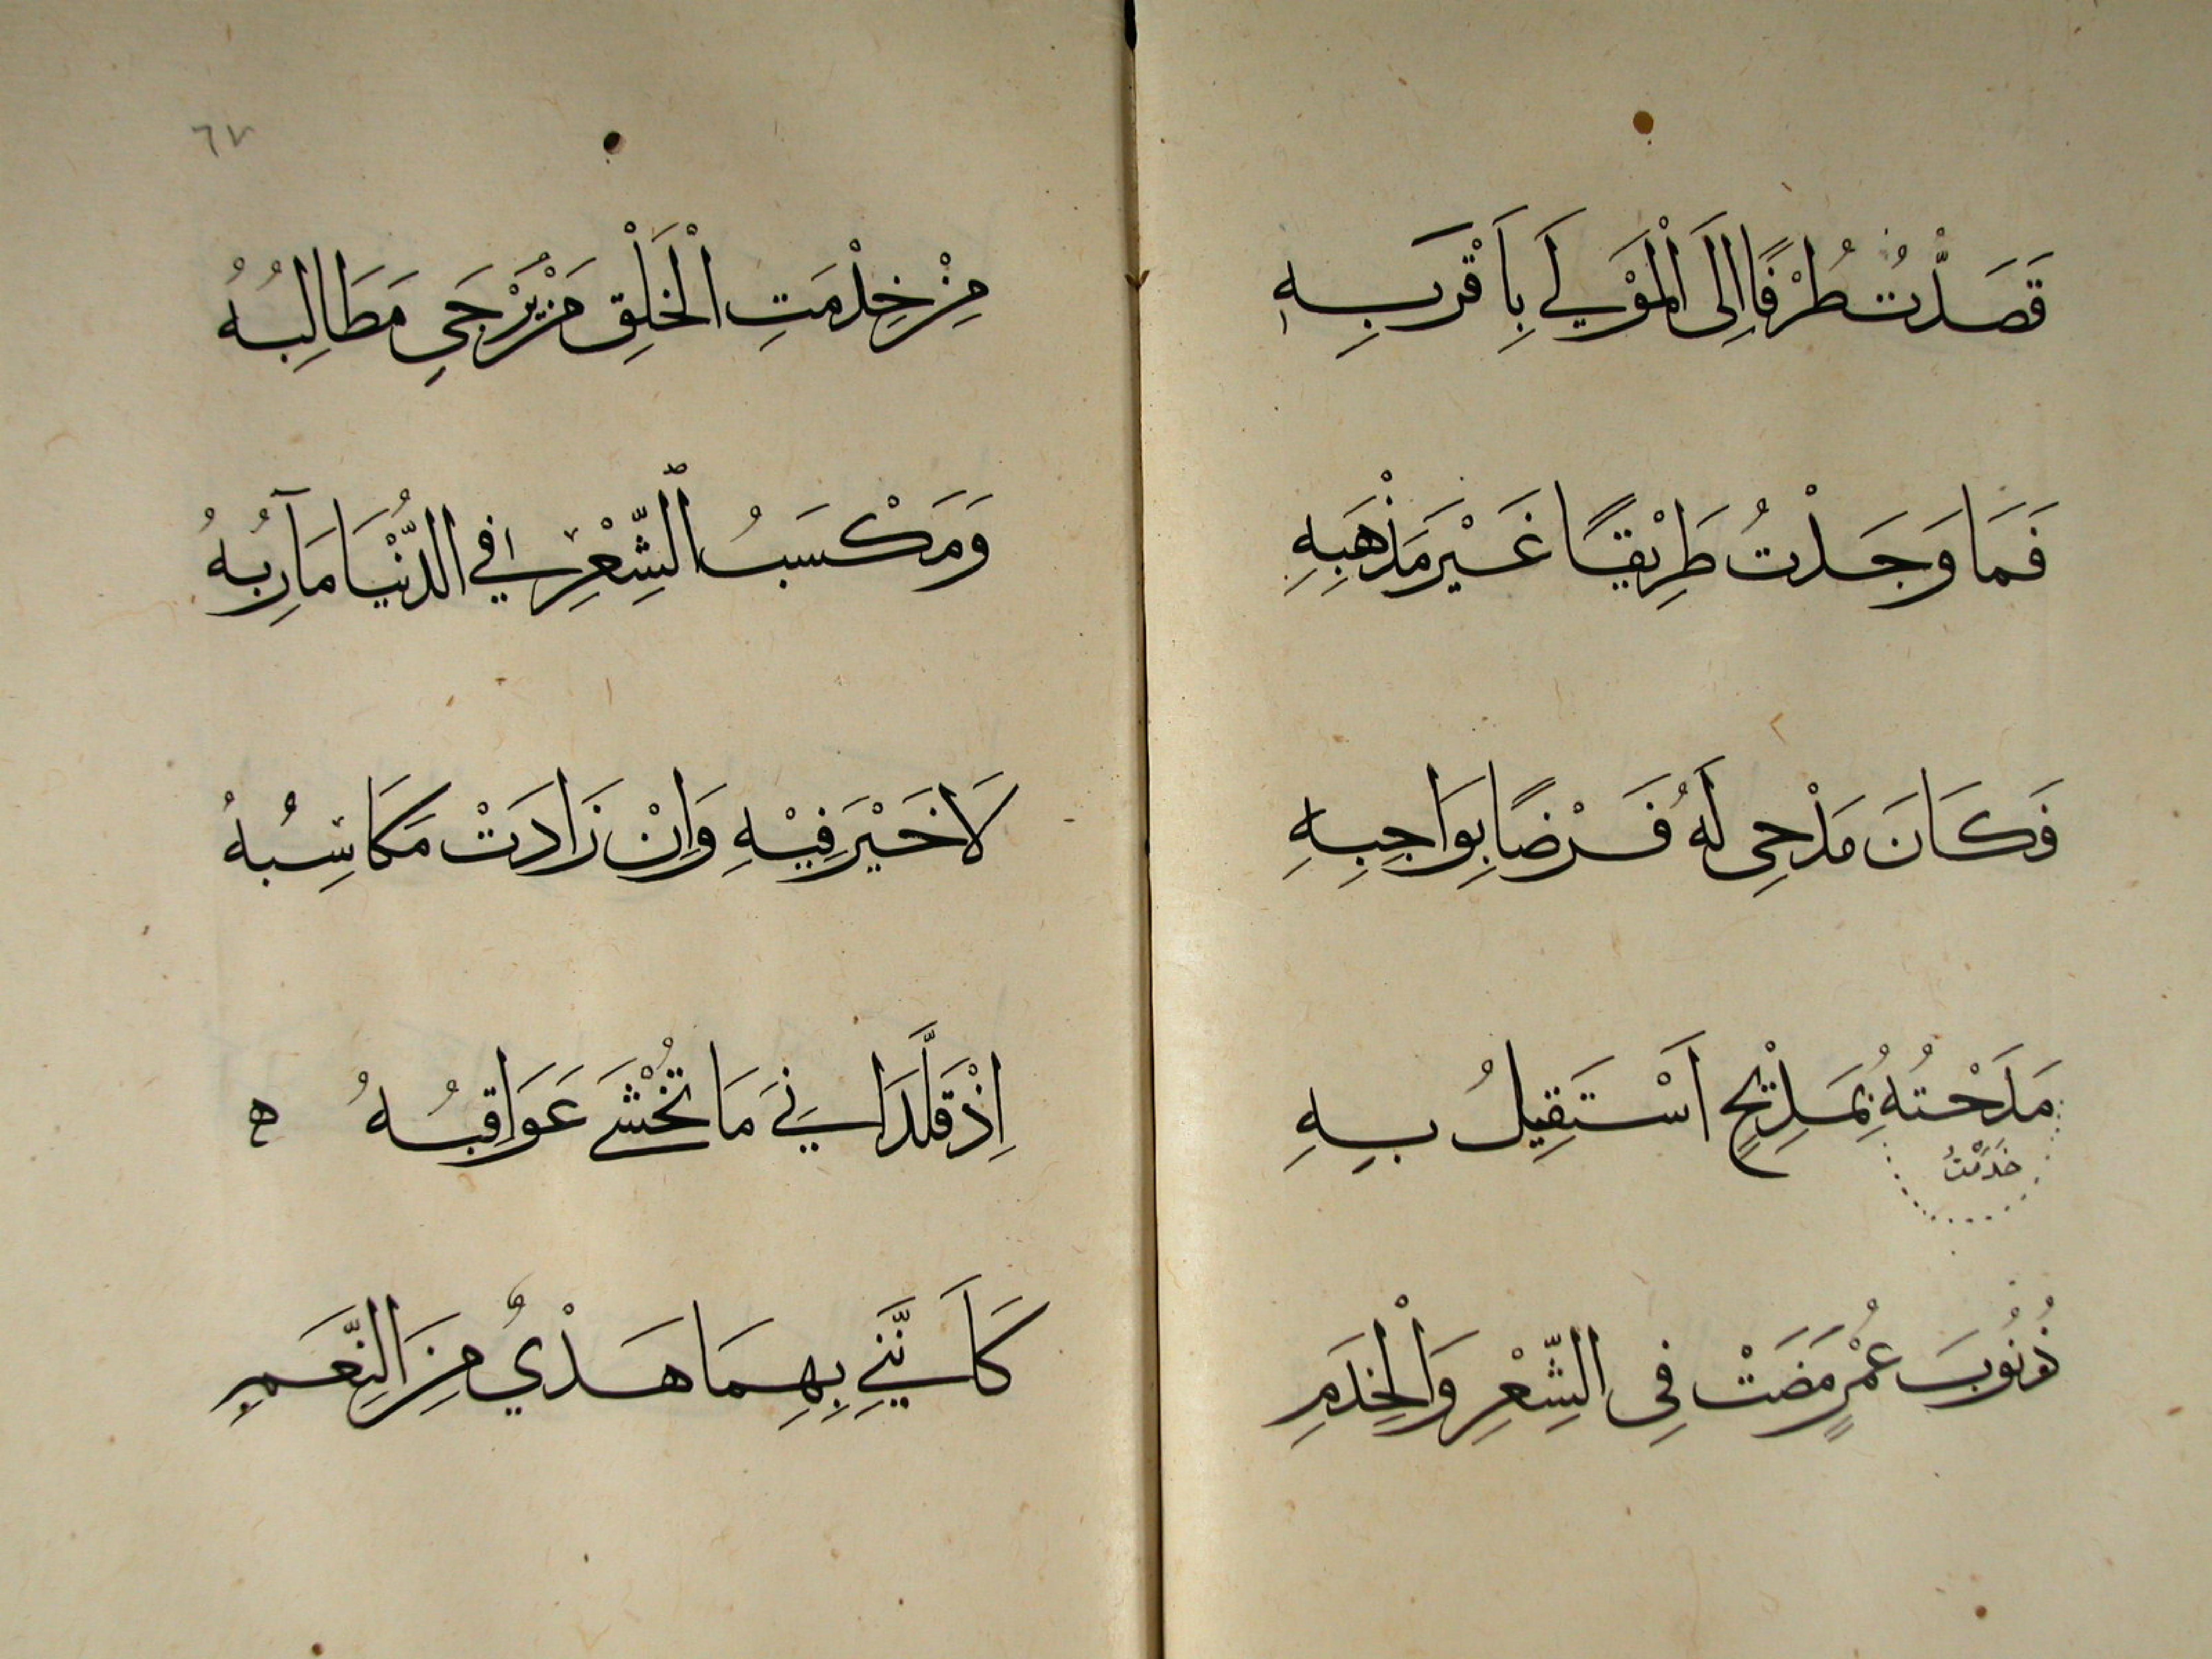 قَصَدْتُ طُرْفًا اِلَى الْمَوْلَى بِاَقْرَبِهِ
فَمَا وَجَدْتُ طَرِيْقًا غَيْرَ مَذْهَبِهِ
فَكَانَ مَدْحِى لَهُ فَرْضًا بِوَاجِبِهِ
مَدَحْتُهُ بِمَدِيْحٍ اَسْتَقِيْلُ بِهِ
خَدَمْتُ
ذُنُوْبَ عُمْرٍ مَضَتْ فِى الشِّعْرِ وَالْخِدَمِ
٦٧
مِنْ خِدْمَتِ الْخَلْقِ مَنْ يُرْجَى مَطَالِبُهُ
وَمَكْسَبُ الشِّعْرِ فِي الدُّنْيَا مَآرِبُهُ
لَاخَيْرَ فِيْهِ وَاِنْ زَادَتْ مَكَاسِبُهُ
اِذْ قَلَّدَانِيَ مَا تُخْشَى عَوَاقِبُهُ ه
كَاَنَّنِي بِهِمَا هَدْيٌ مِنَ النِّعَمِ